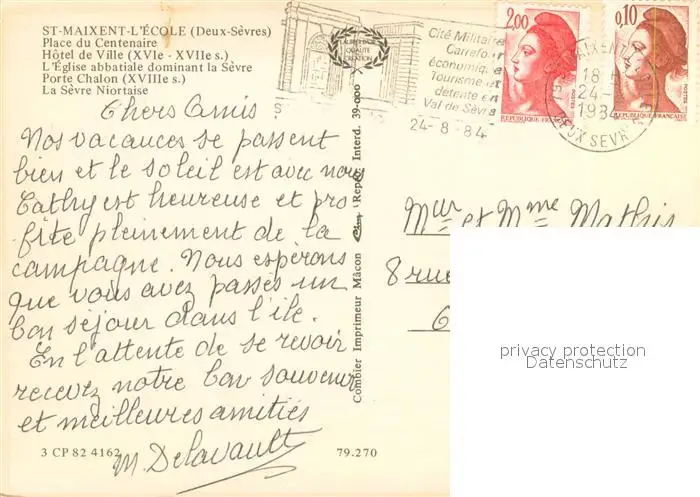 ST-MAIXENT-L'ÉCOLE (Deux-Sèvres)
Place du Centenaire
Hôtel de Ville (XVIe - XVIIe s.)
L'Église abbatiale dominant la Sèvre
Porte Chalon (XVIIIe s.)
La Sèvre Niortaise
Chers Amis
Nos vacances se passent
bien et le soleil est avec nous
Cathy est heureuse et pro
fite pleinement de la
campagne. Nous espérons
que vous avez passés un
bon séjour dans l'ile.
En l'attente de se revoir
recevez notre bon souvenir
et meilleures amitiés
M. Delavault
3 CP 82 4162
79.270
Combier Imprimeur Mâcon
Repr. Interd. 39-000
LABORIEUSE
QUALITÉ
CRÉATION
Cité Militaire
Carrefour
économique
Tourisme et
détente en
Val de Sèvre
24-8-84
2,00
REPUBLIQUE FRANÇAISE
POSTES
0,10
REPUBLIQUE FRANÇAISE
POSTES
MAIXENT
18 H
24-
1984
DEUX SEVRES
Mur et Mme Mathis
8 rue
privacy protection
Datenschutz